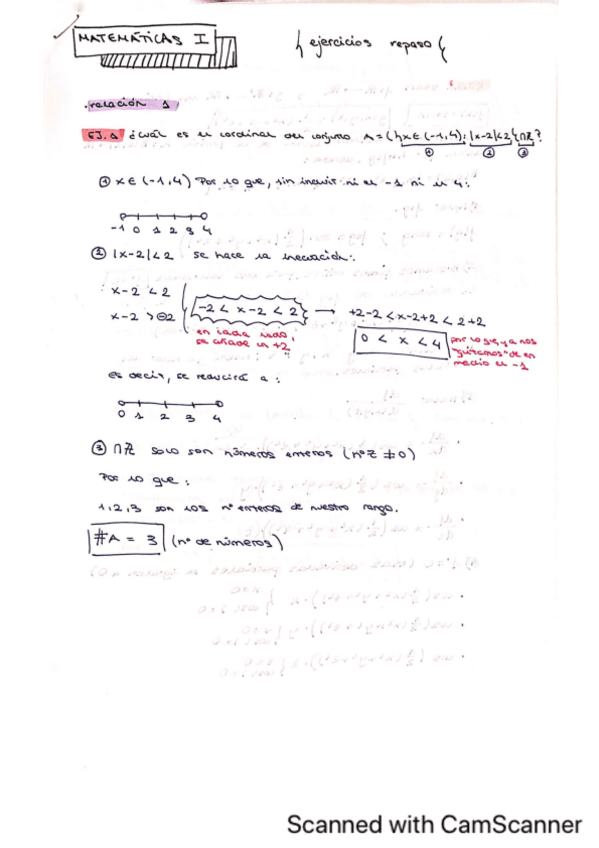 MATEMÁTICAS I
{ ejercicios repaso {
.relación 1
EJ.1 ¿cuál es el cardinal del conjunto A = ({x ∈ (-1,4) : |x-2|<2} ∩ Z ?
① ② ③
① x ∈ (-1,4) Por lo que, sin incluir ni el -1 ni el 4:
-1 0 1 2 3 4
② |x-2|<2 se hace la inecuación:
x-2 < 2
x-2 > -2
-2 < x-2 < 2 → +2-2 < x-2+2 < 2+2
en cada lado, se añade un +2
0 < x < 4
por lo que, ya nos "quitamos" de en medio el -1
es decir, se reducirá a :
0 1 2 3 4
③ ∩ Z solo son números enteros (nº Z ≠ 0)
Por lo que :
1,2,3 son los nº enteros de nuestro rango.
#A = 3 (nº de números)
Scanned with CamScanner